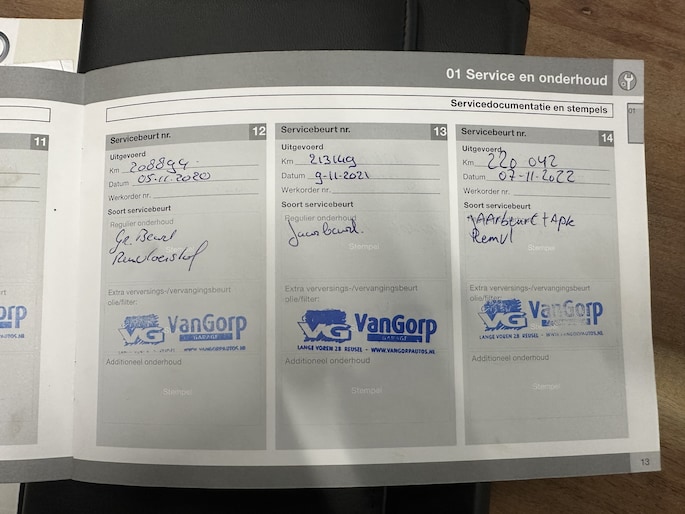 01 Service en onderhoud
01
Servicedocumentatie en stempels
11
Servicebeurt nr. 12
Uitgevoerd
Km 208894
Datum 05.11.2020
Werkorder nr.
Soort servicebeurt
Regulier onderhoud
Gr. Beurt
Remvloeistof
Stempel
Extra verversings-/vervangingsbeurt
olie/filter:
VG VanGorp
GARAGE
Additioneel onderhoud
Stempel
Servicebeurt nr. 13
Uitgevoerd
Km 213149
Datum 9-11-2021
Werkorder nr.
Soort servicebeurt
Regulier onderhoud
Jaarbeurt.
Stempel
Extra verversings-/vervangingsbeurt
olie/filter:
VG VanGorp
GARAGE
LANGE VOREN 28 REUSEL - WWW.VANGORPAUTOS.NL
Additioneel onderhoud
Stempel
Servicebeurt nr. 14
Uitgevoerd
Km 220 042
Datum 07-11-2022
Werkorder nr.
Soort servicebeurt
JAArbeurt + Apk
Remvl
Stempel
Extra verversings-/vervangingsbeurt
olie/filter:
VG VanGorp
LANGE VOREN 28 REUSEL - WWW.VANGORPAUTOS.NL
Additioneel onderhoud
Stempel
orp
13